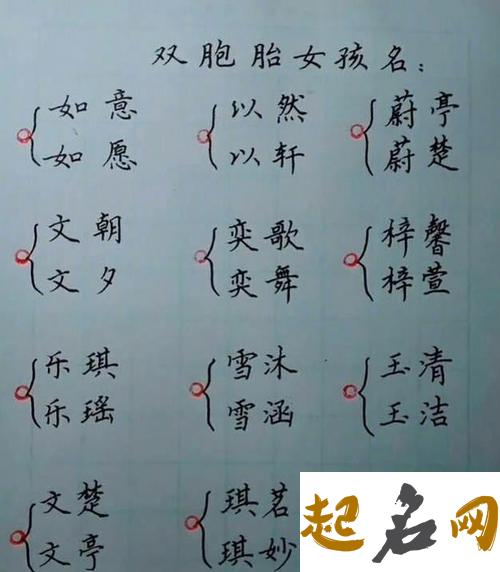 双胞胎女孩名：
如意 以然 蔚亭
如愿 以轩 蔚楚
文朝 奕歌 梓馨
文夕 奕舞 梓萱
乐琪 雪沐 玉清
乐瑶 雪涵 玉洁
文楚 琪茗
文亭 琪妙
起名网